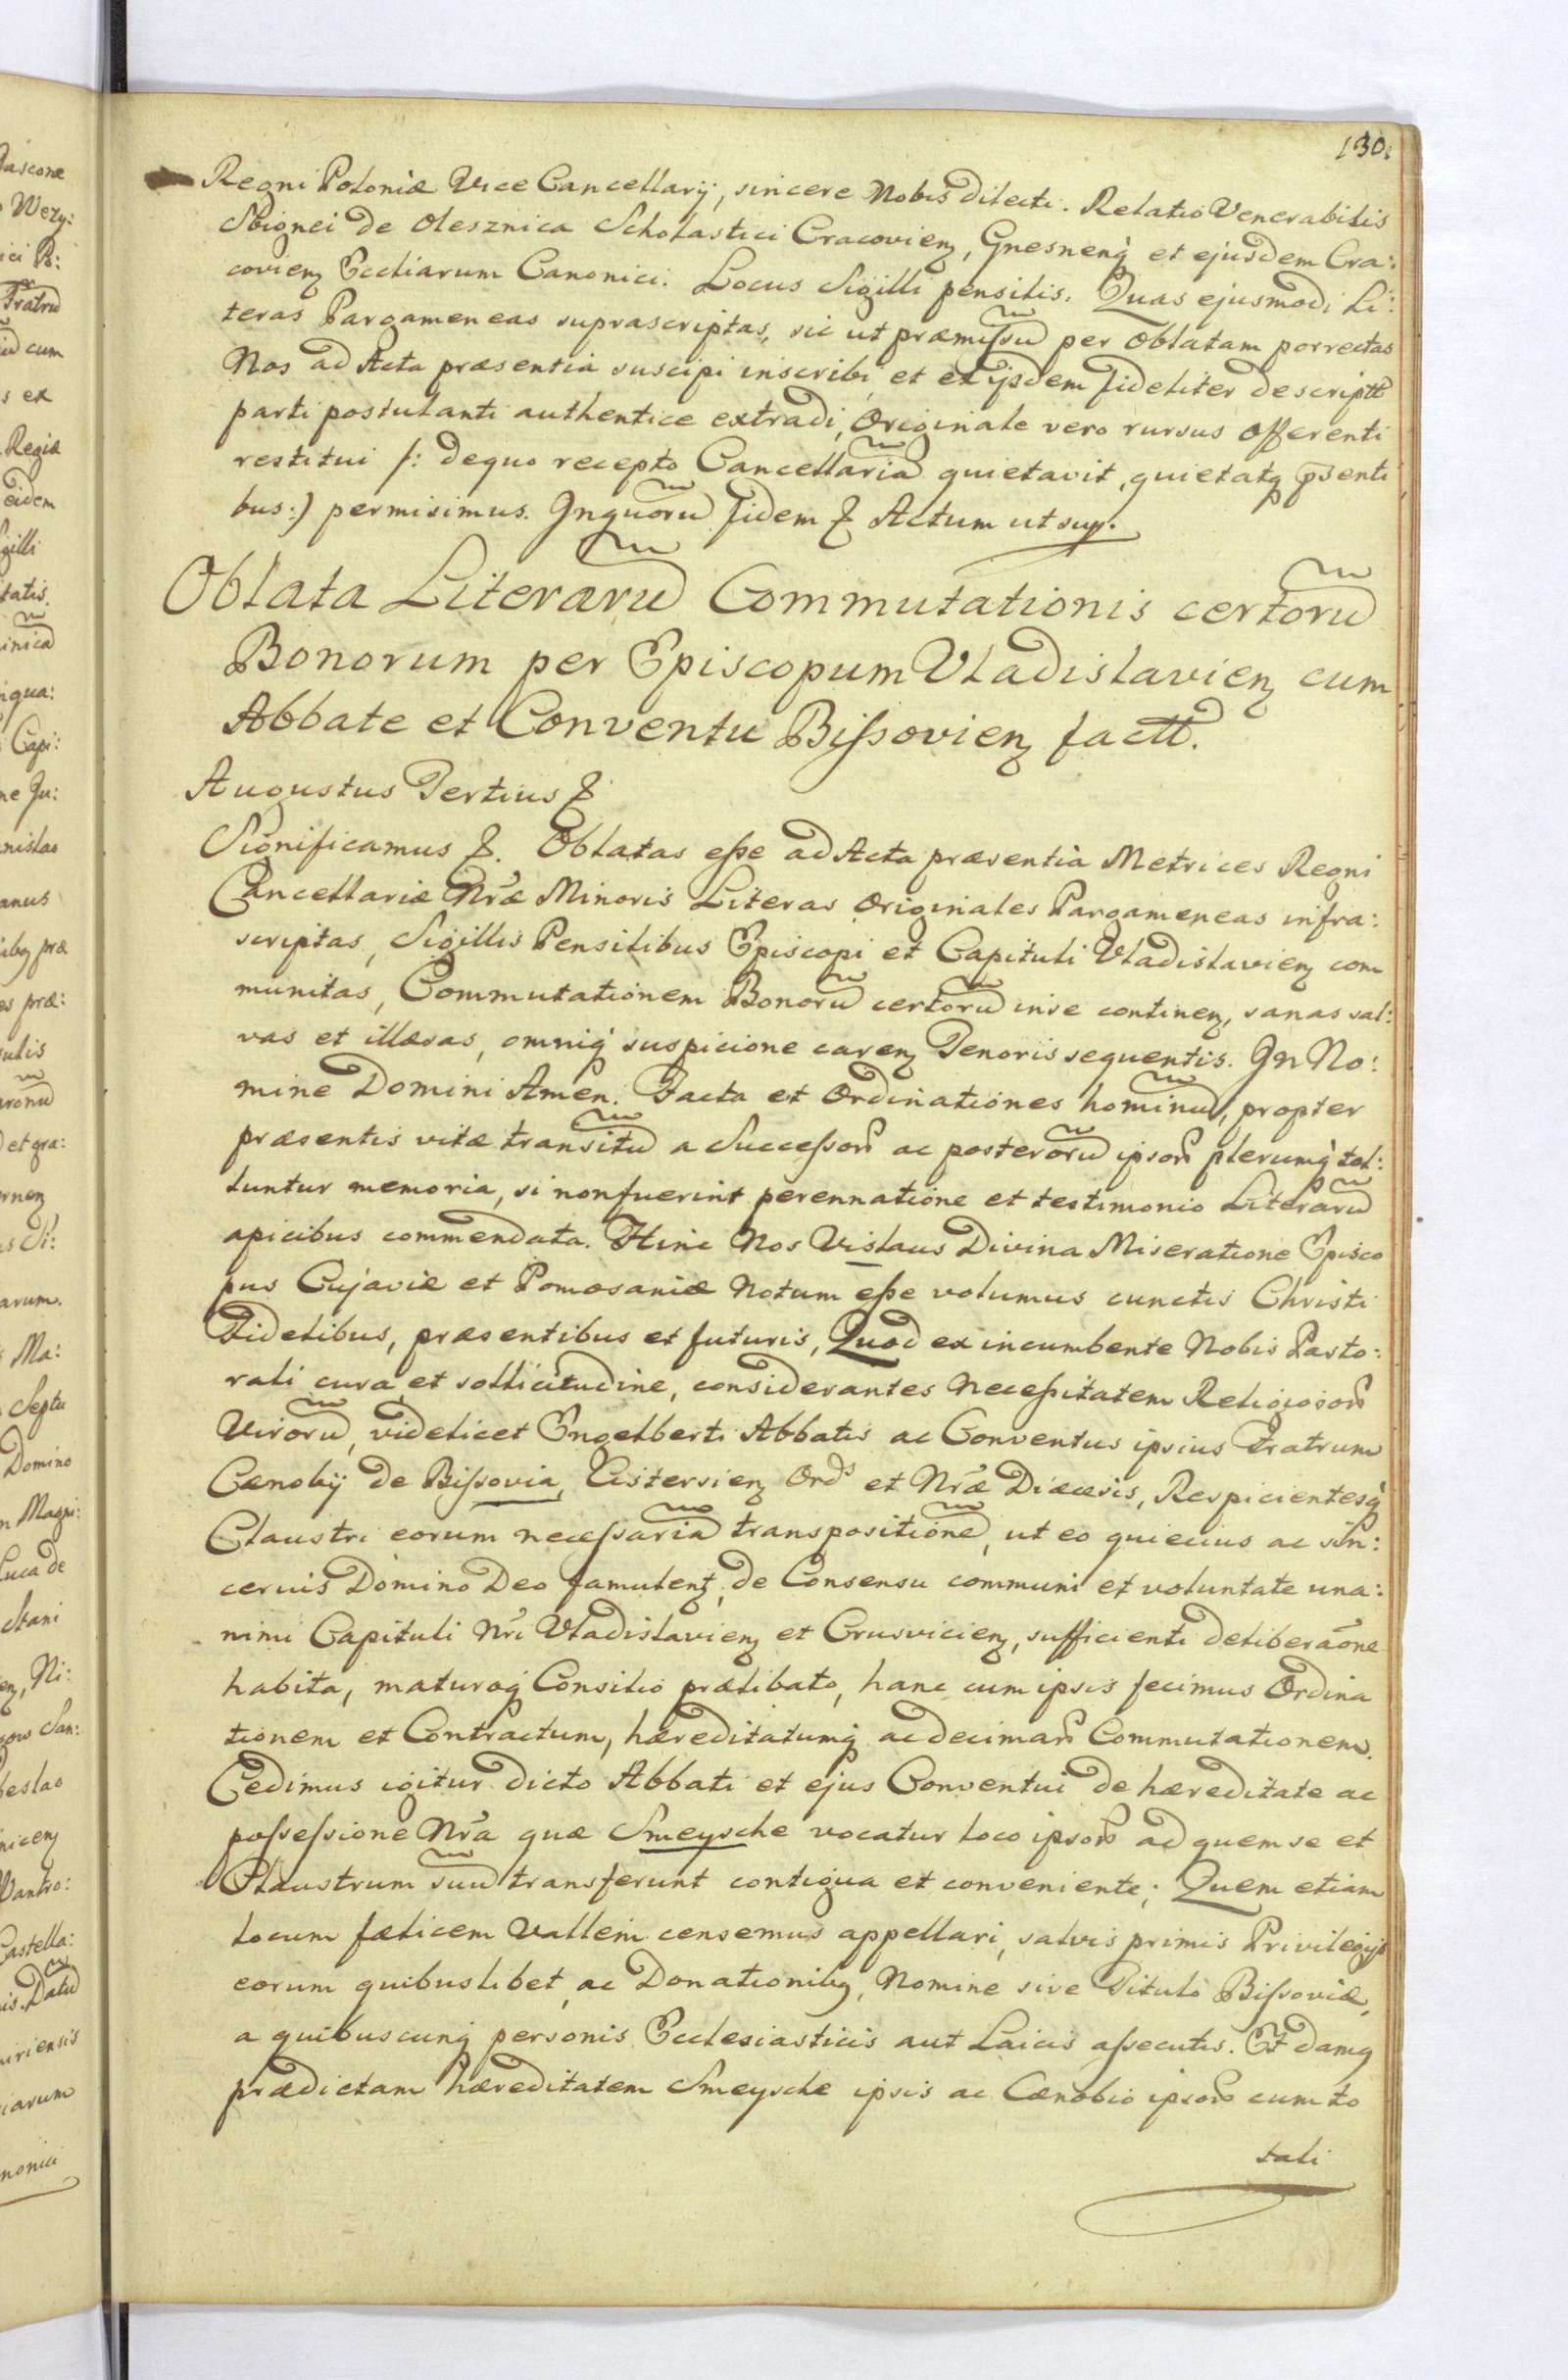 130.
Regni Poloniæ Vice Cancellarij, sincere Nobis dilecti. Relatio Venerabilis
Sbignei de Olesznica Scholastici Cracovien, Gnesnenq et ejusdem Cra:
covien Eccliarum Canonici. Locus Sigilli pensilis. Quas ejusmodi Li:
teras Pargameneas suprascriptas, sic ut præmissũ per Oblatam porrectas
Nos ad Acta præsentia suscipi inscribi et ex ijsdem fideliter descriptt
parti postulanti authentice extradi, Originale vero rursus Offerenti
restitui /: dequo recepto Cancellariã quietavit, quietatq psenti
bus:) permisimus. Inquorũ fidem & Actum ut sup.
Oblata Literarũ Commutationis certorũ
Bonorum per Episcopum Vladislavien cum
Abbate et Conventu Bissovien factt.
Augustus Tertius &
Significamus &. Oblatas esse ad Acta præsentia Metrices Regni
Cancellariæ Nræ Minoris Literas Originales Pargameneas infra:
scriptas, Sigillis Pensilibus Episcopi et Capituli Vladislavien com
munitas, Commutationem Bonorũ certorũ inse continen, sanas sal:
vas et illæsas, omniq suspicione caren Tenoris sequentis. In No:
mine Domini Amen. Facta et Ordinationes hominũ, propter
præsentis vitæ transitũ a Successorũ ac posterorũ ipsorũ plerumq tol:
luntur memoria, si nonfuerint perennatione et testimonio Literarũ
apicibus commendata. Hinc Nos Vislaus Divina Miseratione Episco
pus Cujaviæ et Pomosaniæ Notum esse volumus cunctis Christi
Fidelibus, præsentibus et futuris, Quod ex incumbente Nobis Pasto:
rali cura et sollicitudine, considerantes Necessitatem Religiosorũ
Virorũ, videlicet Engelberti Abbatis ac Conventus ipsius Fratrum
Cænobij de Bissovia, Cistersien Ords et Nræ Diæcesis, Respicientesq
Claustri eorum necessariã transpositionẽ, ut eo quiecius ac sin:
cerius Domino Deo famulent, de Consensu communi et voluntate una:
nimi Capituli Nri Vladislavien et Crusvicien, sufficienti deliberaõne
habita, maturoq Consilio prælibato, hanc cum ipsis fecimus Ordina
tionem et Contractum, hæreditatumq ac decimarũ Commutationem.
Cedimus igitur dicto Abbati et ejus Conventui de hæreditate ac
possessione Nra quæ Smeysche vocatur loco ipsorũ ad quem se et
Claustrum suũ transferunt contigua et conveniente; Quem etiam
locum fælicem Vallem censemus appellari, salvis primis Privilegijs
eorum quibuslibet, ac Donationibq, Nomine sive Titulo Bissoviæ,
a quibuscunq personis Ecclesiasticis aut Laicis assecutis. Et damq
prædictam hæreditatem Smeysche ipsis ac Cænobio ipsorũ cum to
tali